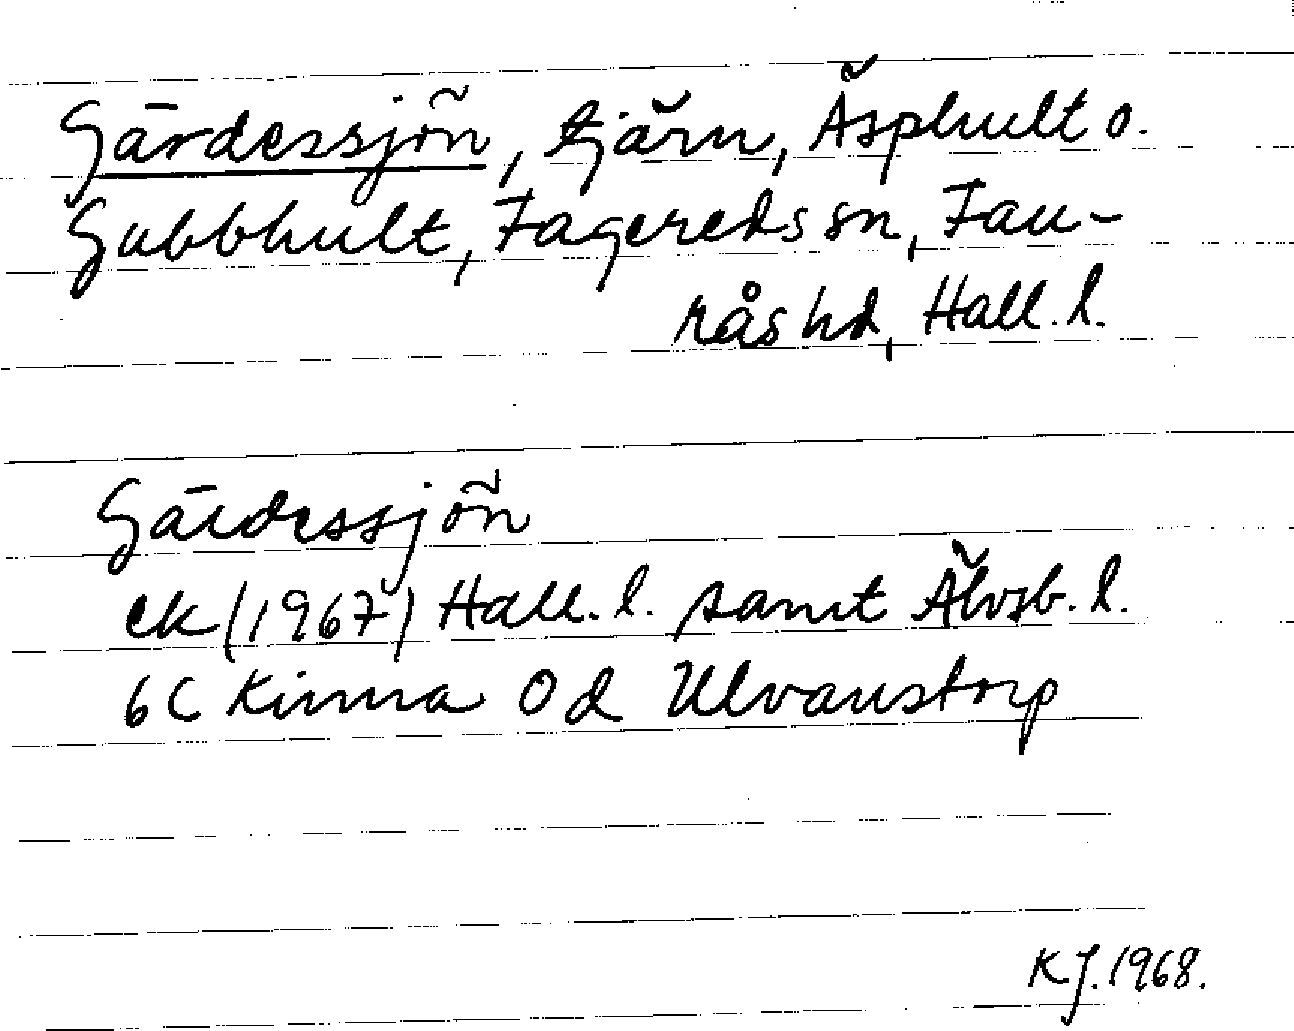 Gärdessjön, tjärn, Äsphult o.
Gubbhult, Fagereds sn, Fau-
rås hd, Hall. l.
Gärdessjön
ek (1967) Hall. l. samt Älvsb. l.
6C Kinna 0d Ulvanstorp
KJ. 1968.